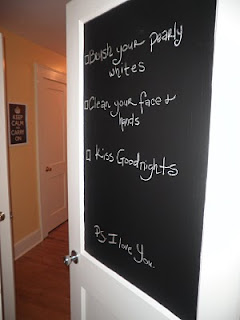 Brush your pearly
whites
Clean your face &
hands
Kiss Goodnights
PS I love You
KEEP
CALM
AND
CARRY
ON